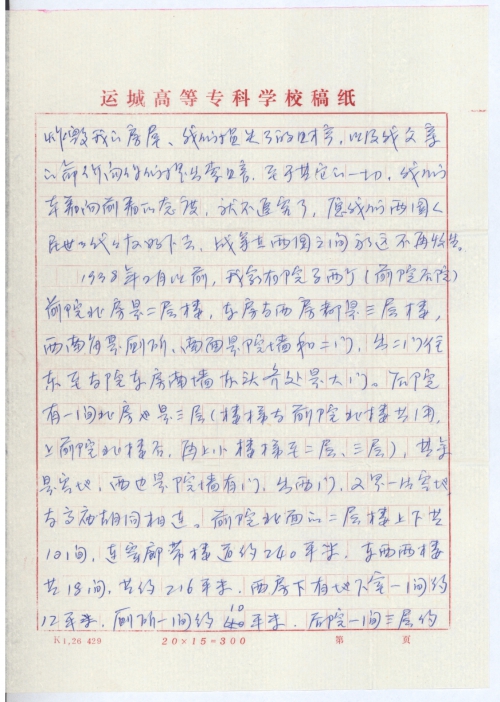 运城高等专科学校稿纸
炸毁我的房屋、我们损失了的财产,以及我父亲
的命价向你们提出索赔,至于其它的一切,我们
本着向前看的态度,就不追究了,愿我们两国人
民世世代代友好下去,战争在两国之间永远不再发生。
1938年2月以前,我家有院子两个(前院后院)
前院北房是二层楼,东房与西房都是三层楼,
西南角是厕所、南面是院墙和二门,出二门往
东至与院东房南墙东头齐处是大门。后院
有一间北房也是三层(楼梯与前院北楼共用,
上前院北楼后,再上小楼梯至二层、三层),其余
是空地,西边是院墙有门,出西门,又是一片空地
与高庙胡同相连。前院北面的二层楼上下共
10间,连家廊带楼道约240平米,东西两楼
共18间,共约216平米,西房下有地下室一间约
12平米,厕所一间约10平米,后院一间三层约
K1,26 429
20×15=300
第 页